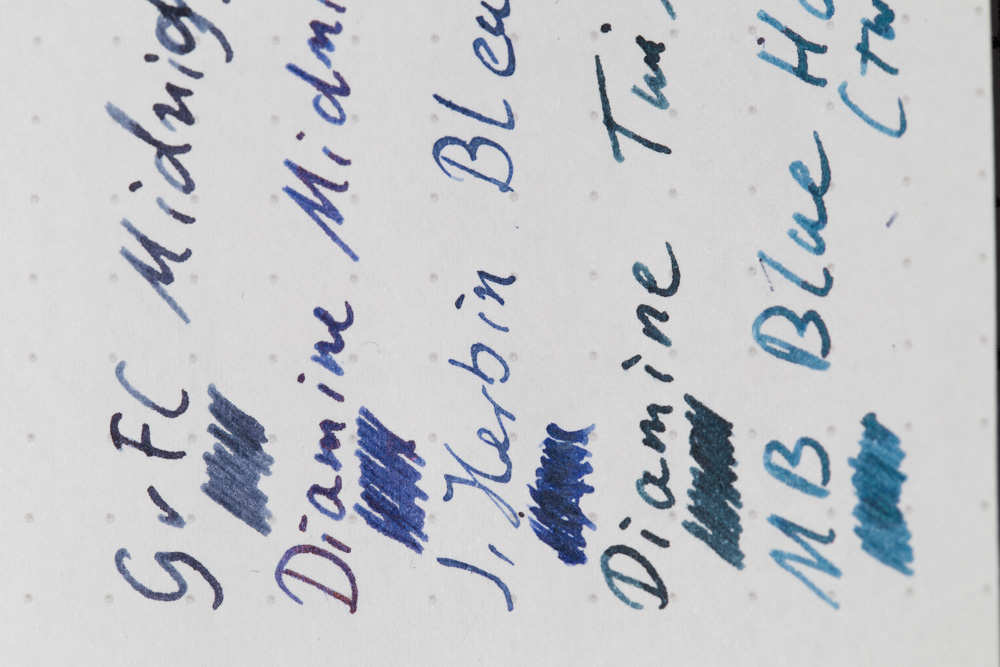 GvFC Midnig
Diamine Midni
J. Herbin Bleu
Diamine Twi
MB Blue Ho
(Tw